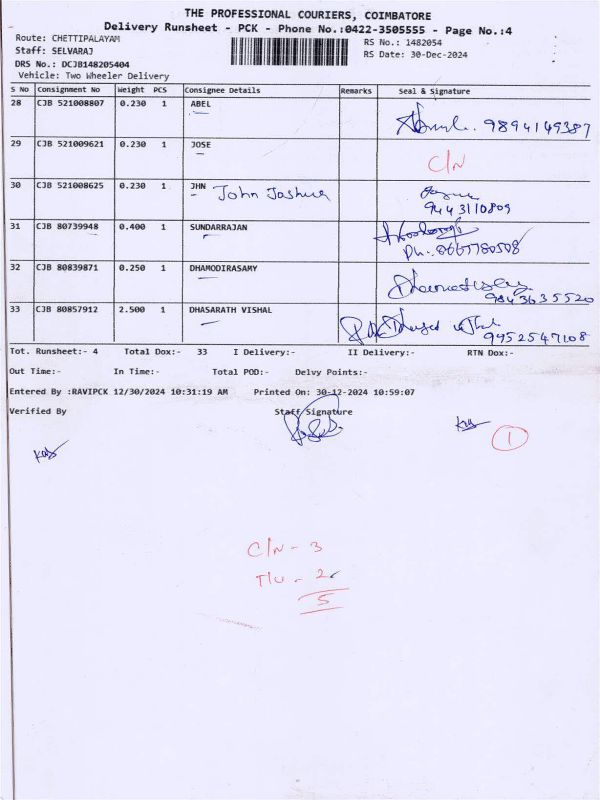 THE PROFESSIONAL COURIERS, COIMBATORE
Delivery Runsheet - PCK - Phone No.:0422-3505555 - Page No.:4
Route: CHETTIPALAYAM RS No.: 1482054
Staff: SELVARAJ RS Date: 30-Dec-2024
DRS No.: DCJB148205404
Vehicle: Two Wheeler Delivery
S No Consignment No Weight PCS Consignee Details Remarks Seal & Signature
28 CJB 521008807 0.230 1 ABEL
9894149387
29 CJB 521009621 0.230 1 JOSE
C/N
30 CJB 521008625 0.230 1 JHN John Joshua
9443110809
31 CJB 80739948 0.400 1 SUNDARRAJAN
Ph:.
32 CJB 80839871 0.250 1 DHAMODIRASAMY
9843635520
33 CJB 80857912 2.500 1 DHASARATH VISHAL
9952547108
Tot. Runsheet:- 4 Total Dox:- 33 I Delivery:- II Delivery:- RTN Dox:-
Out Time:- In Time:- Total POD:- Delvy Points:-
Entered By :RAVIPCK 12/30/2024 10:31:19 AM Printed On: 30-12-2024 10:59:07
Verified By Staff Signature
1
C/N - 3
T/U - 2
5